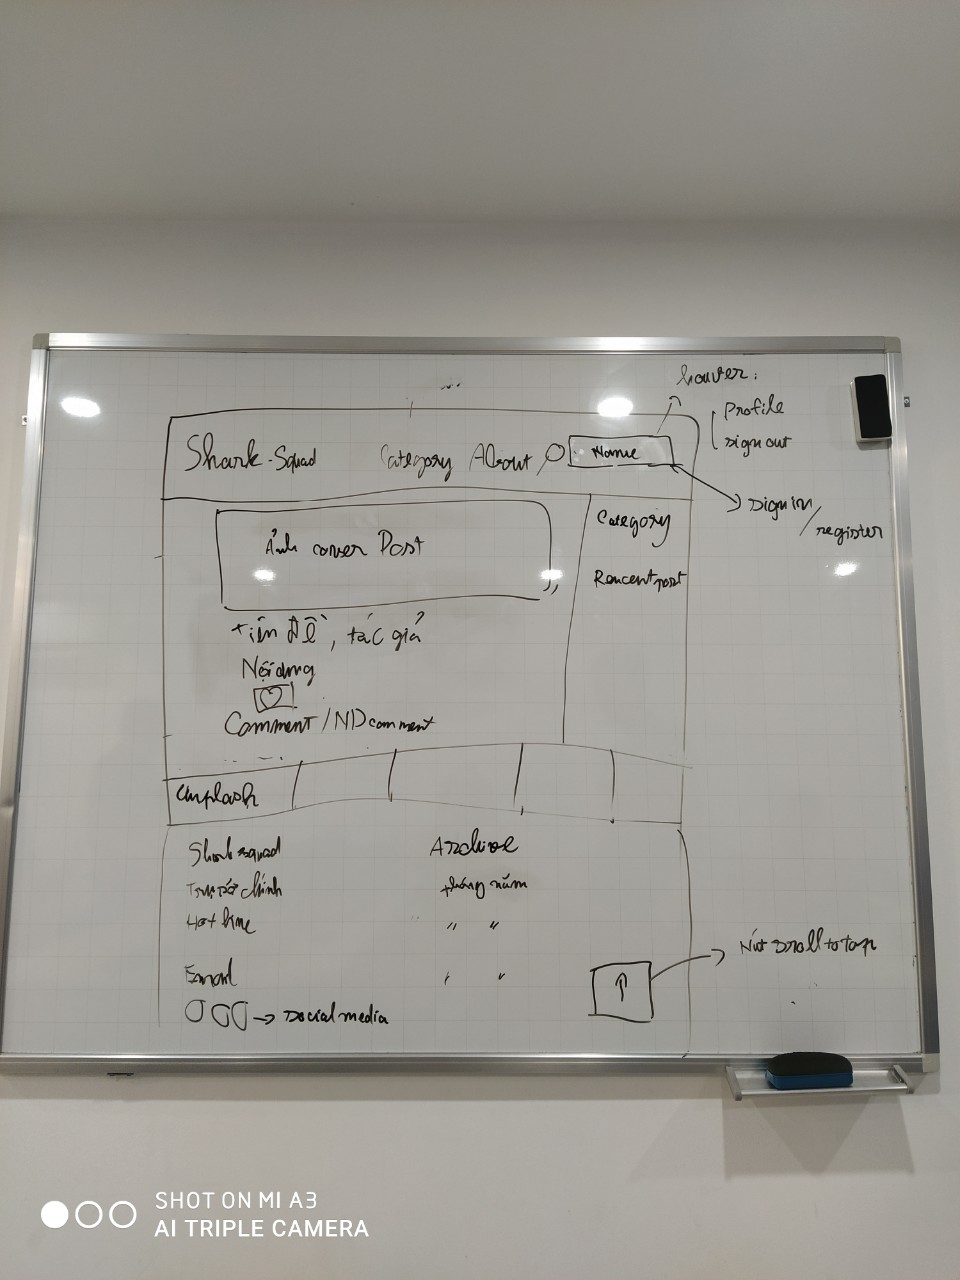 hover:
Profile
sign out
Shark-Squad
Category
About
Name
sign in/
register
Ảnh cover Post
Category
Rencent post
tiên đề, tác giả
Nội dung
Comment/ND comment
unplash
Shark squad
Archive
Trụ sở chính
tháng năm
Hotline
" "
Email
" "
social media
↑
Nút scroll to top
SHOT ON MI A3
AI TRIPLE CAMERA